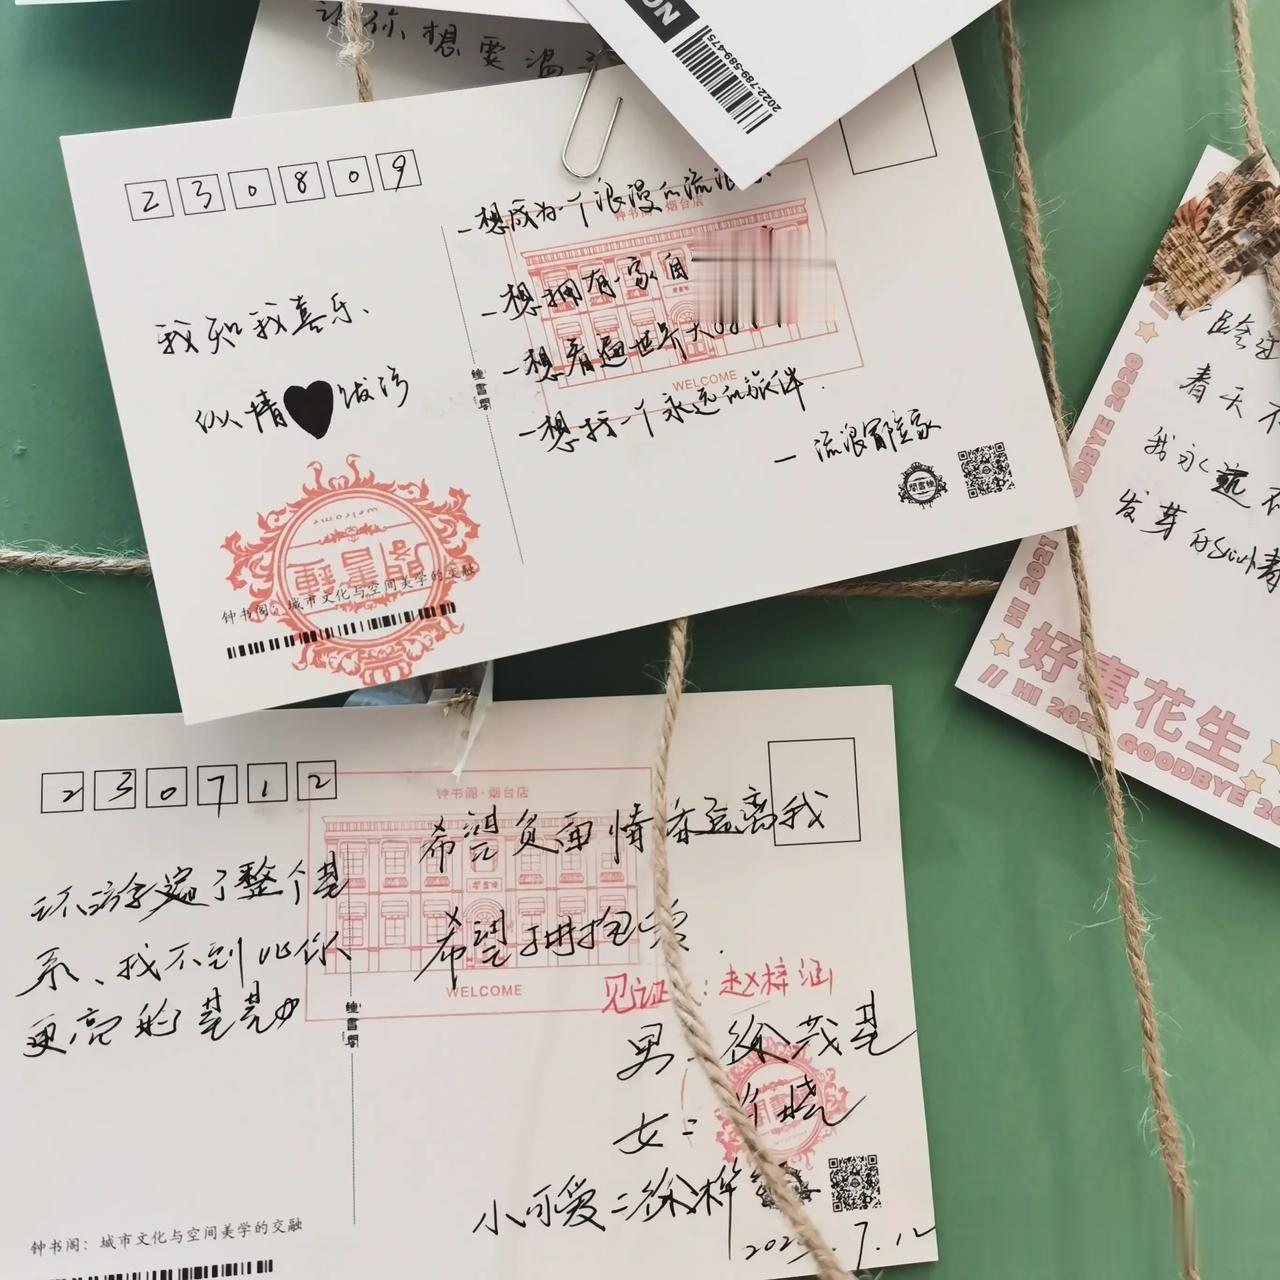 你想要温
NO
2022-789-589-475
230809
我知我喜乐、
似情 泼污
一想成为一个浪漫的流浪
一想拥有一家自
一想看遍世界大
一想找一个永远的旅伴.
一流浪冒险家
钟书阁·烟台店
鍾書閣
WELCOME
鍾書閣
welcome
鍾書閣
钟书阁：城市文化与空间美学的交融
春天不
我永远
发芽的
GOODBYE 2020
HI 2021
好事花生
// HI 2021 GOODBYE 20
230712
环游遍了整个星
系、找不到比你
更亮的星星
钟书阁·烟台店
鍾書閣
WELCOME
鍾書閣
希望负面情 远离我
希望拥抱爱.
见证：赵梓涵
男：徐茂基
女： 晓
小可爱：徐梓
7.12
钟书阁：城市文化与空间美学的交融